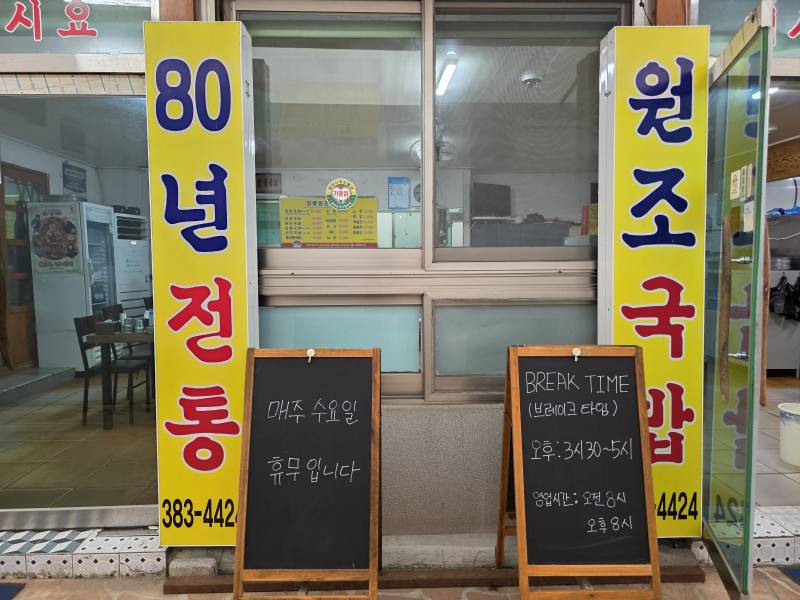 시요
80년전통
383-4424
원조국밥
-4424
매주 수요일
휴무입니다
BREAK TIME
(브레이크 타임)
오후:3시30~5시
영업시간: 오전8시
오후8시